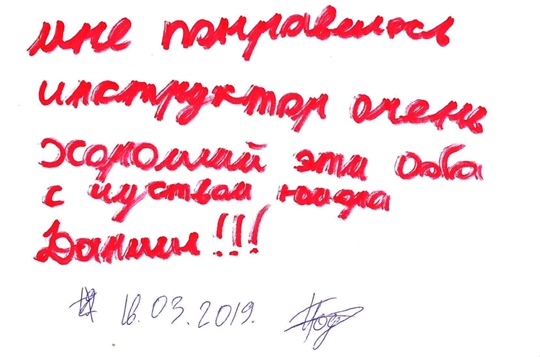 мне понравилось
инструктор очень
хороший эти оба
с чуством юмора
Даниил!!!
16.03.2019.